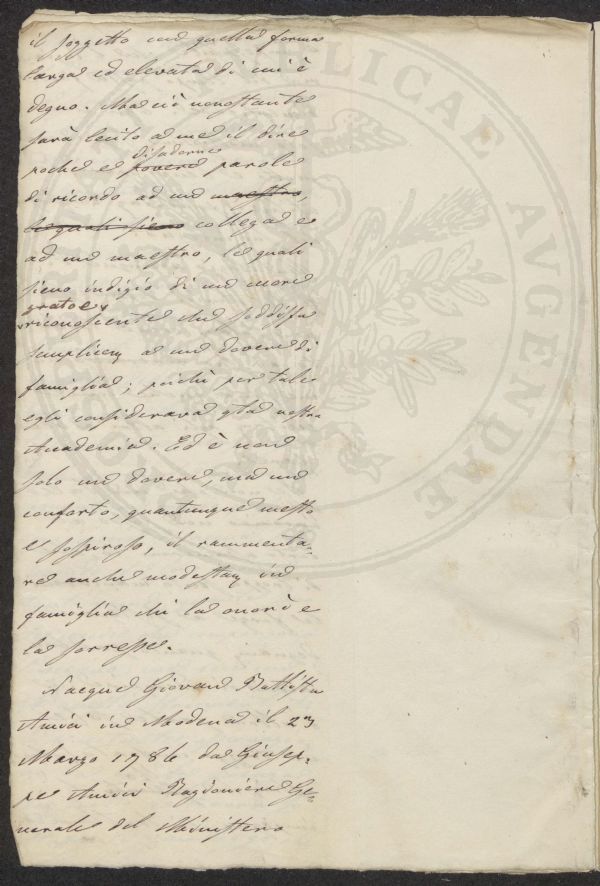 il soggetto con quella forma
larga ed elevata di cui è
degno. Ma ciò nonostante
sarà lecito a me il dire
poche e disadorne povere parole
di ricordo ad un maestro,
le quali sieno collega e
ad un maestro, le quali
sieno indizio di un cuore
grato e
riconoscente che soddisfa
semplicem a un dovere di
famiglia; poichè per tale
egli considerava qta nostra
Accademia. Ed è non
solo un dovere, ma un
conforto, quantunque mesto
e sospiroso, il rammenta-
re anche modestam in
famiglia chi la onorò e
la sorresse.
Nacque Giovan Battista
Amici in Modena il 23
Marzo 1786 da Giusep-
pe Amici Ragioniere Ge-
nerale del Ministero
PUBLICAE AVGENDAE